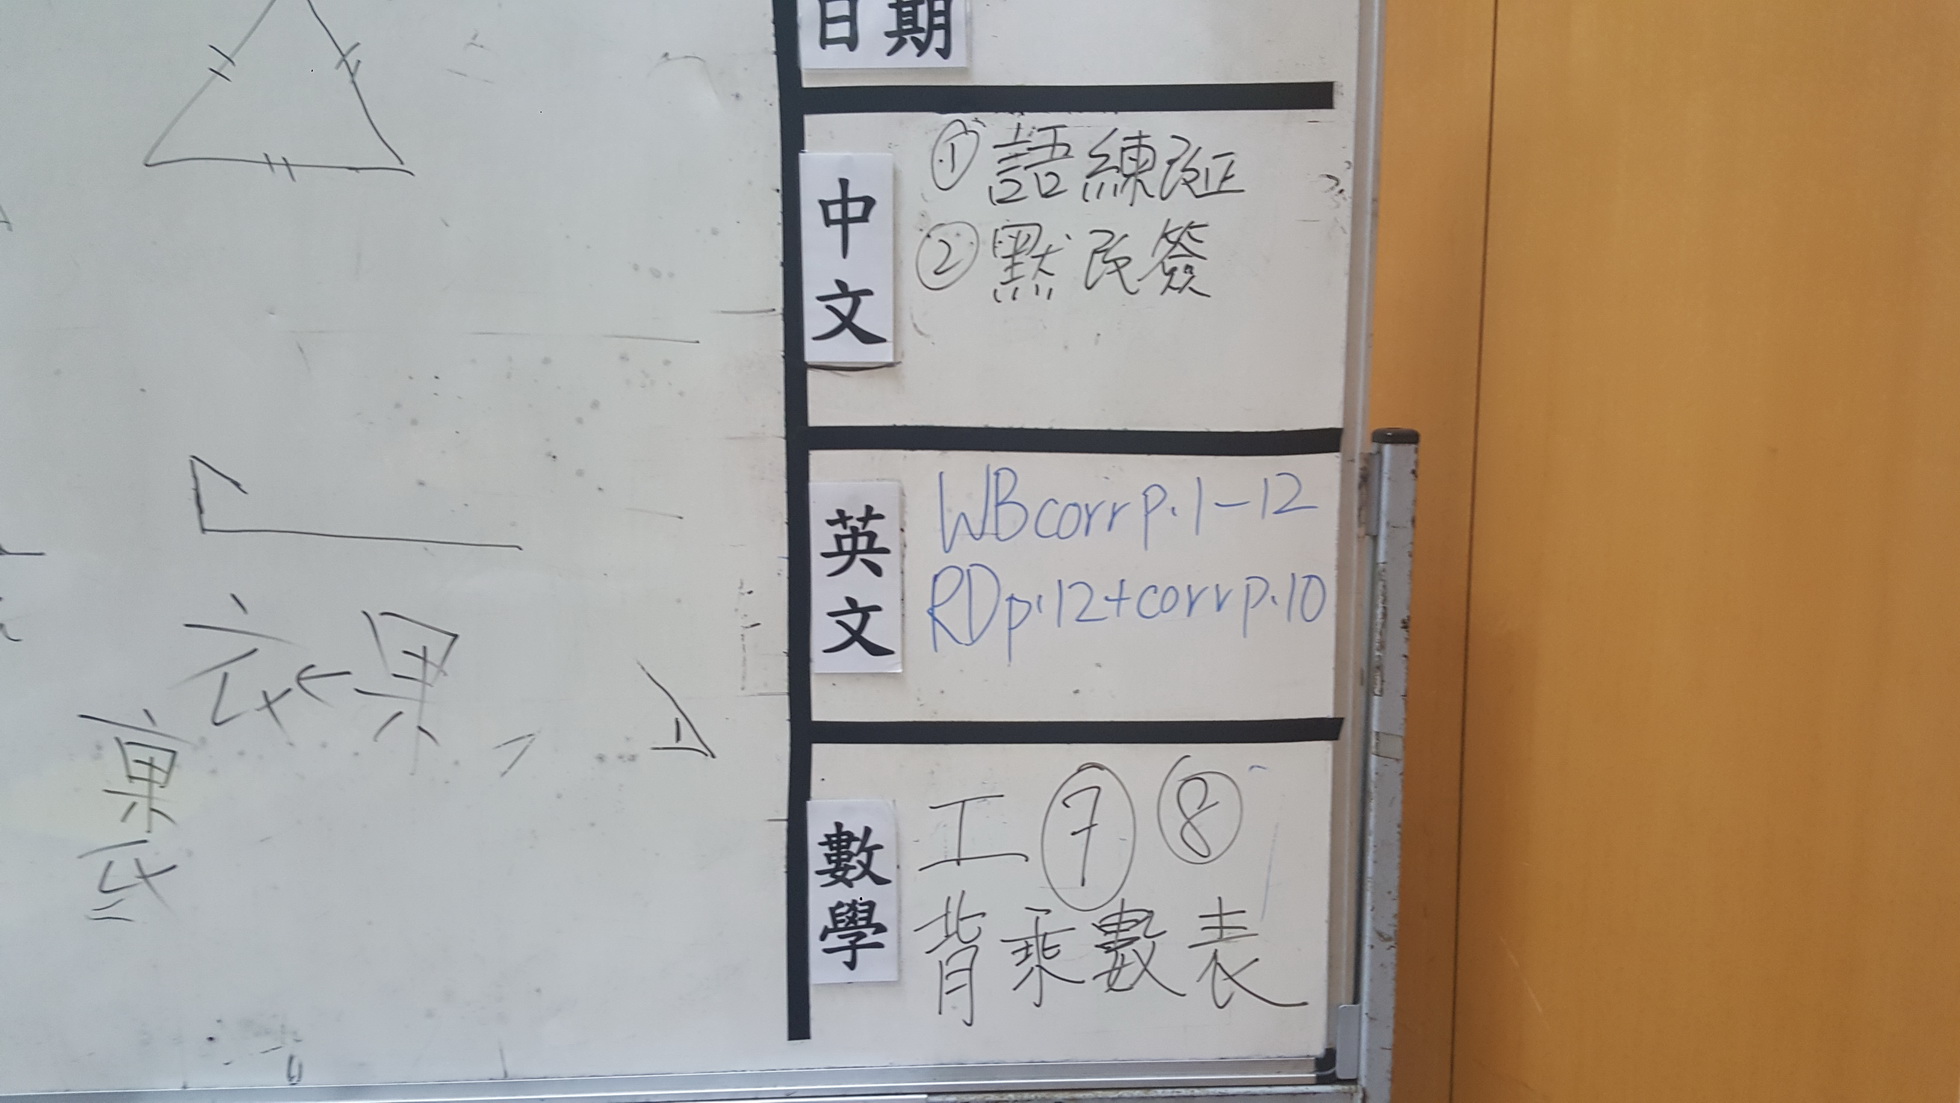 日期
中文
① 語練改正
② 默改簽
英文
WB corr p.1-12
RD p.12+corr p.10
數學
工 ⑦ ⑧
背乘數表
衣←果